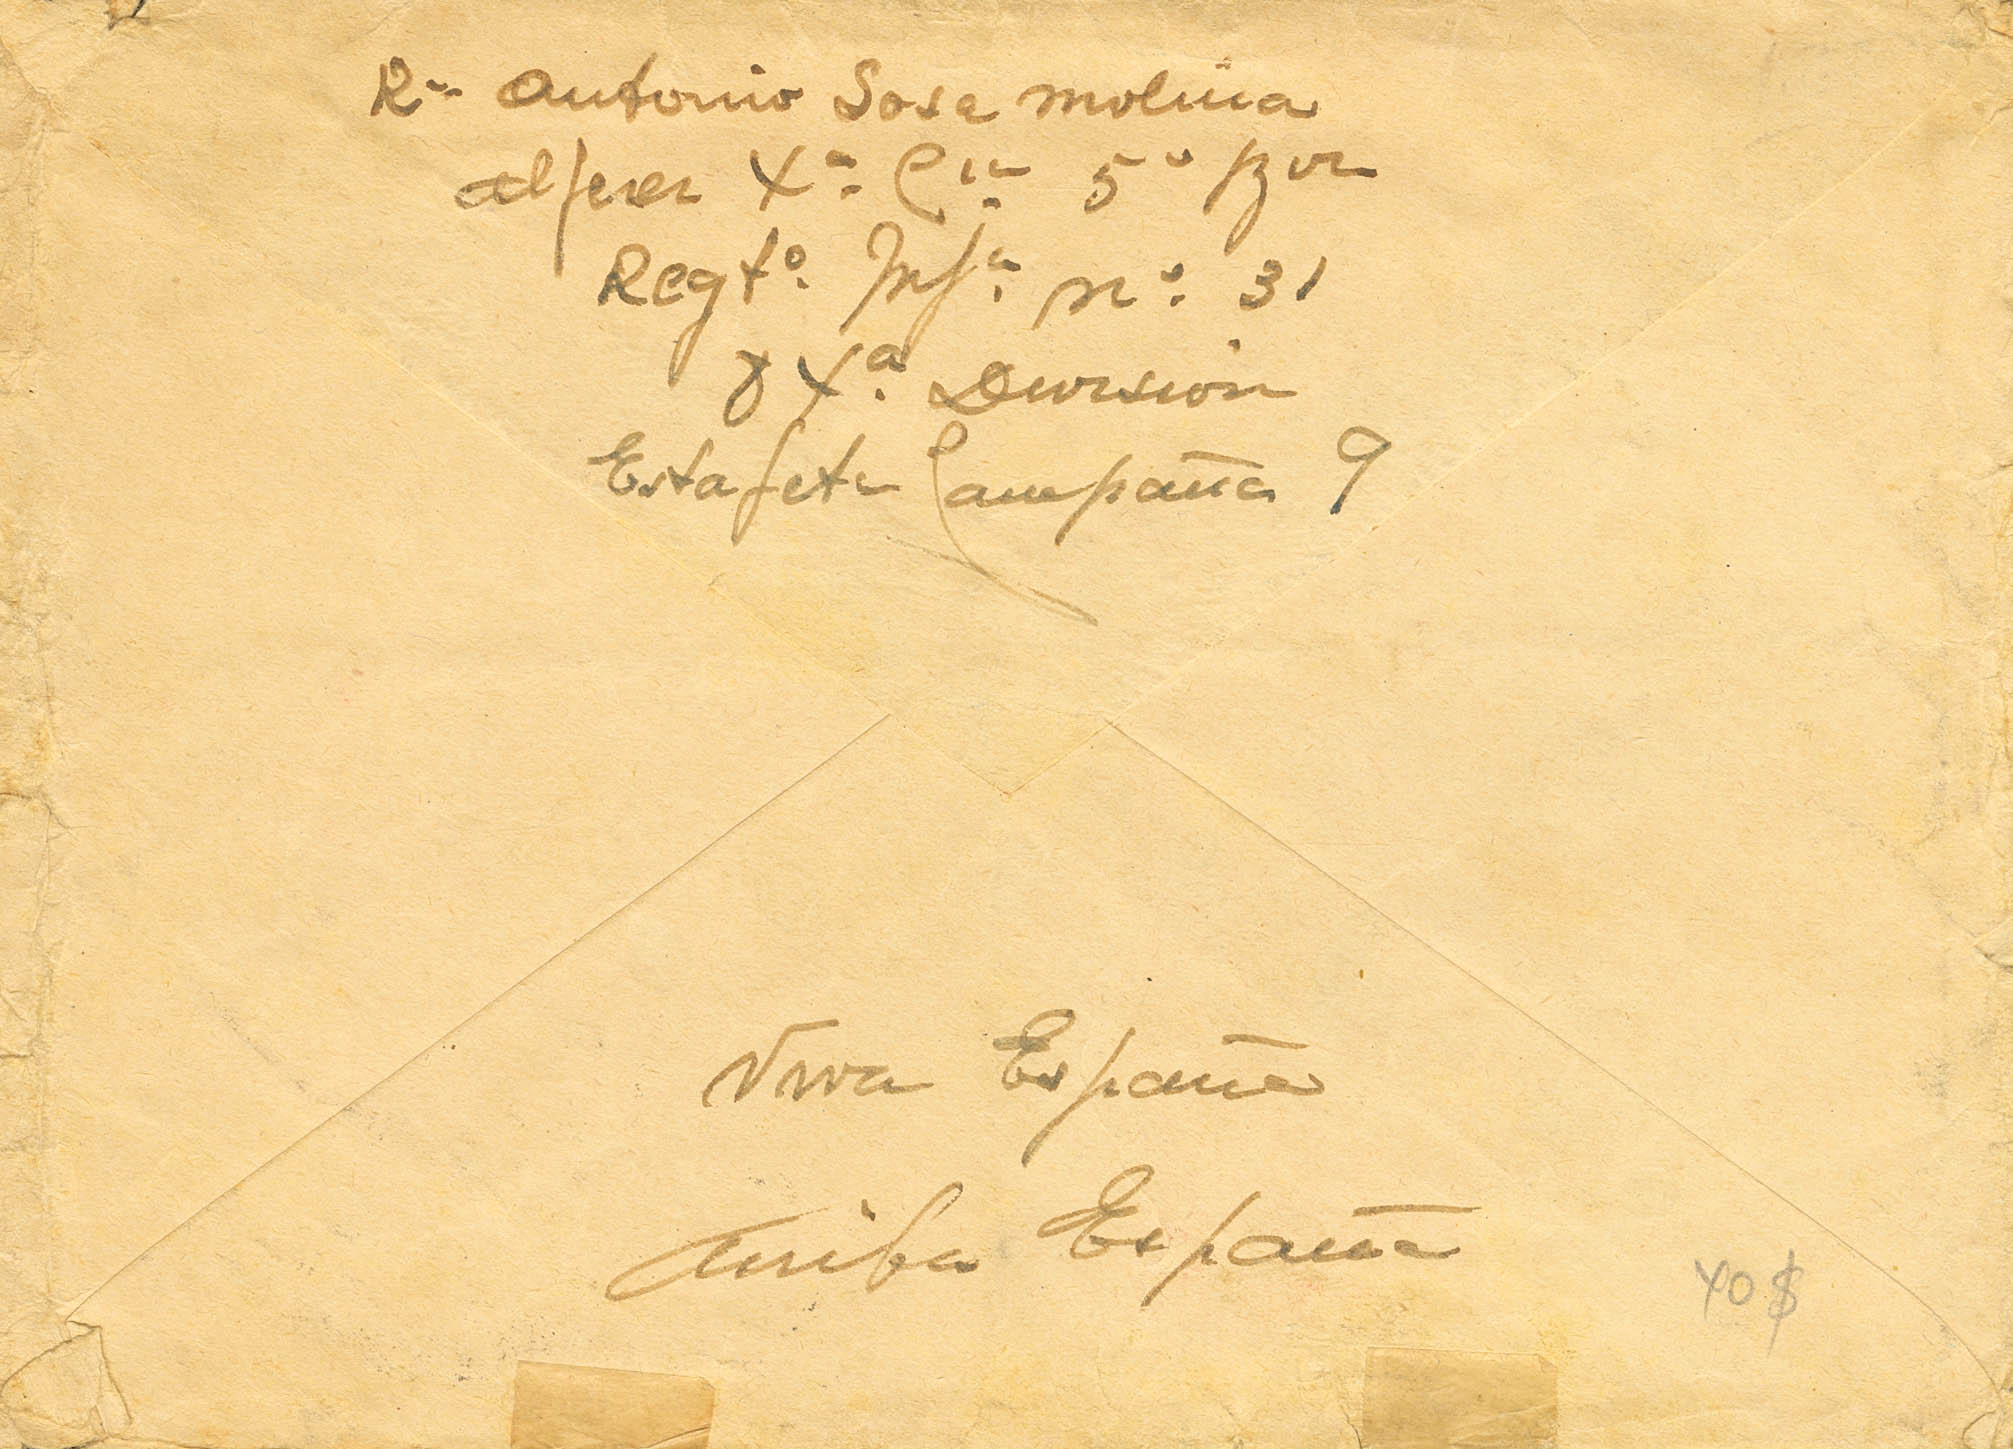 Rte. Antonio Sosa Molina
Alferez Xª. Cía. 5º Bon
Regtº. Infª. nº. 31
8 Xª. Division
Estafeta Campaña 9
Viva España
Arriba España
40 $